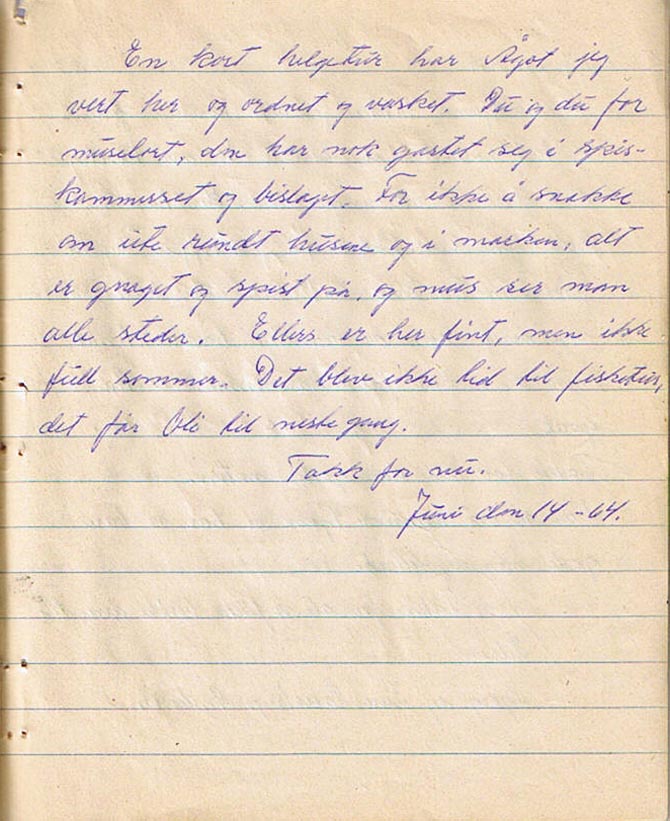 En kort helgetur har Ågot jeg
vert her og ordnet og vasket. Du og du for
muselort, den har nok gastet seg i spis-
kammerset og bislaget. For ikke å snakke
om ute rundt husene og i marken, alt
er gnaget og spist på, og mus ser man
alle steder. Ellers er her fint, men ikke
full sommer. Det blev ikke tid til fisketur,
det får bli til neste gang.
Takk for nu.
Juni den 14 - 64.